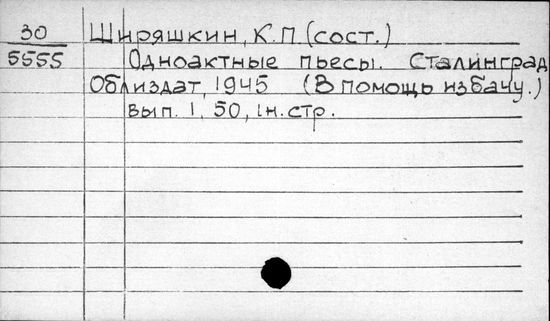 30 Ширяшкин, К.П. (сост.)
5555 Одноактные пьесы. Сталинград
Облиздат, 1945 (В помощь избачу.)
вып. 1, 50, 1н. стр.